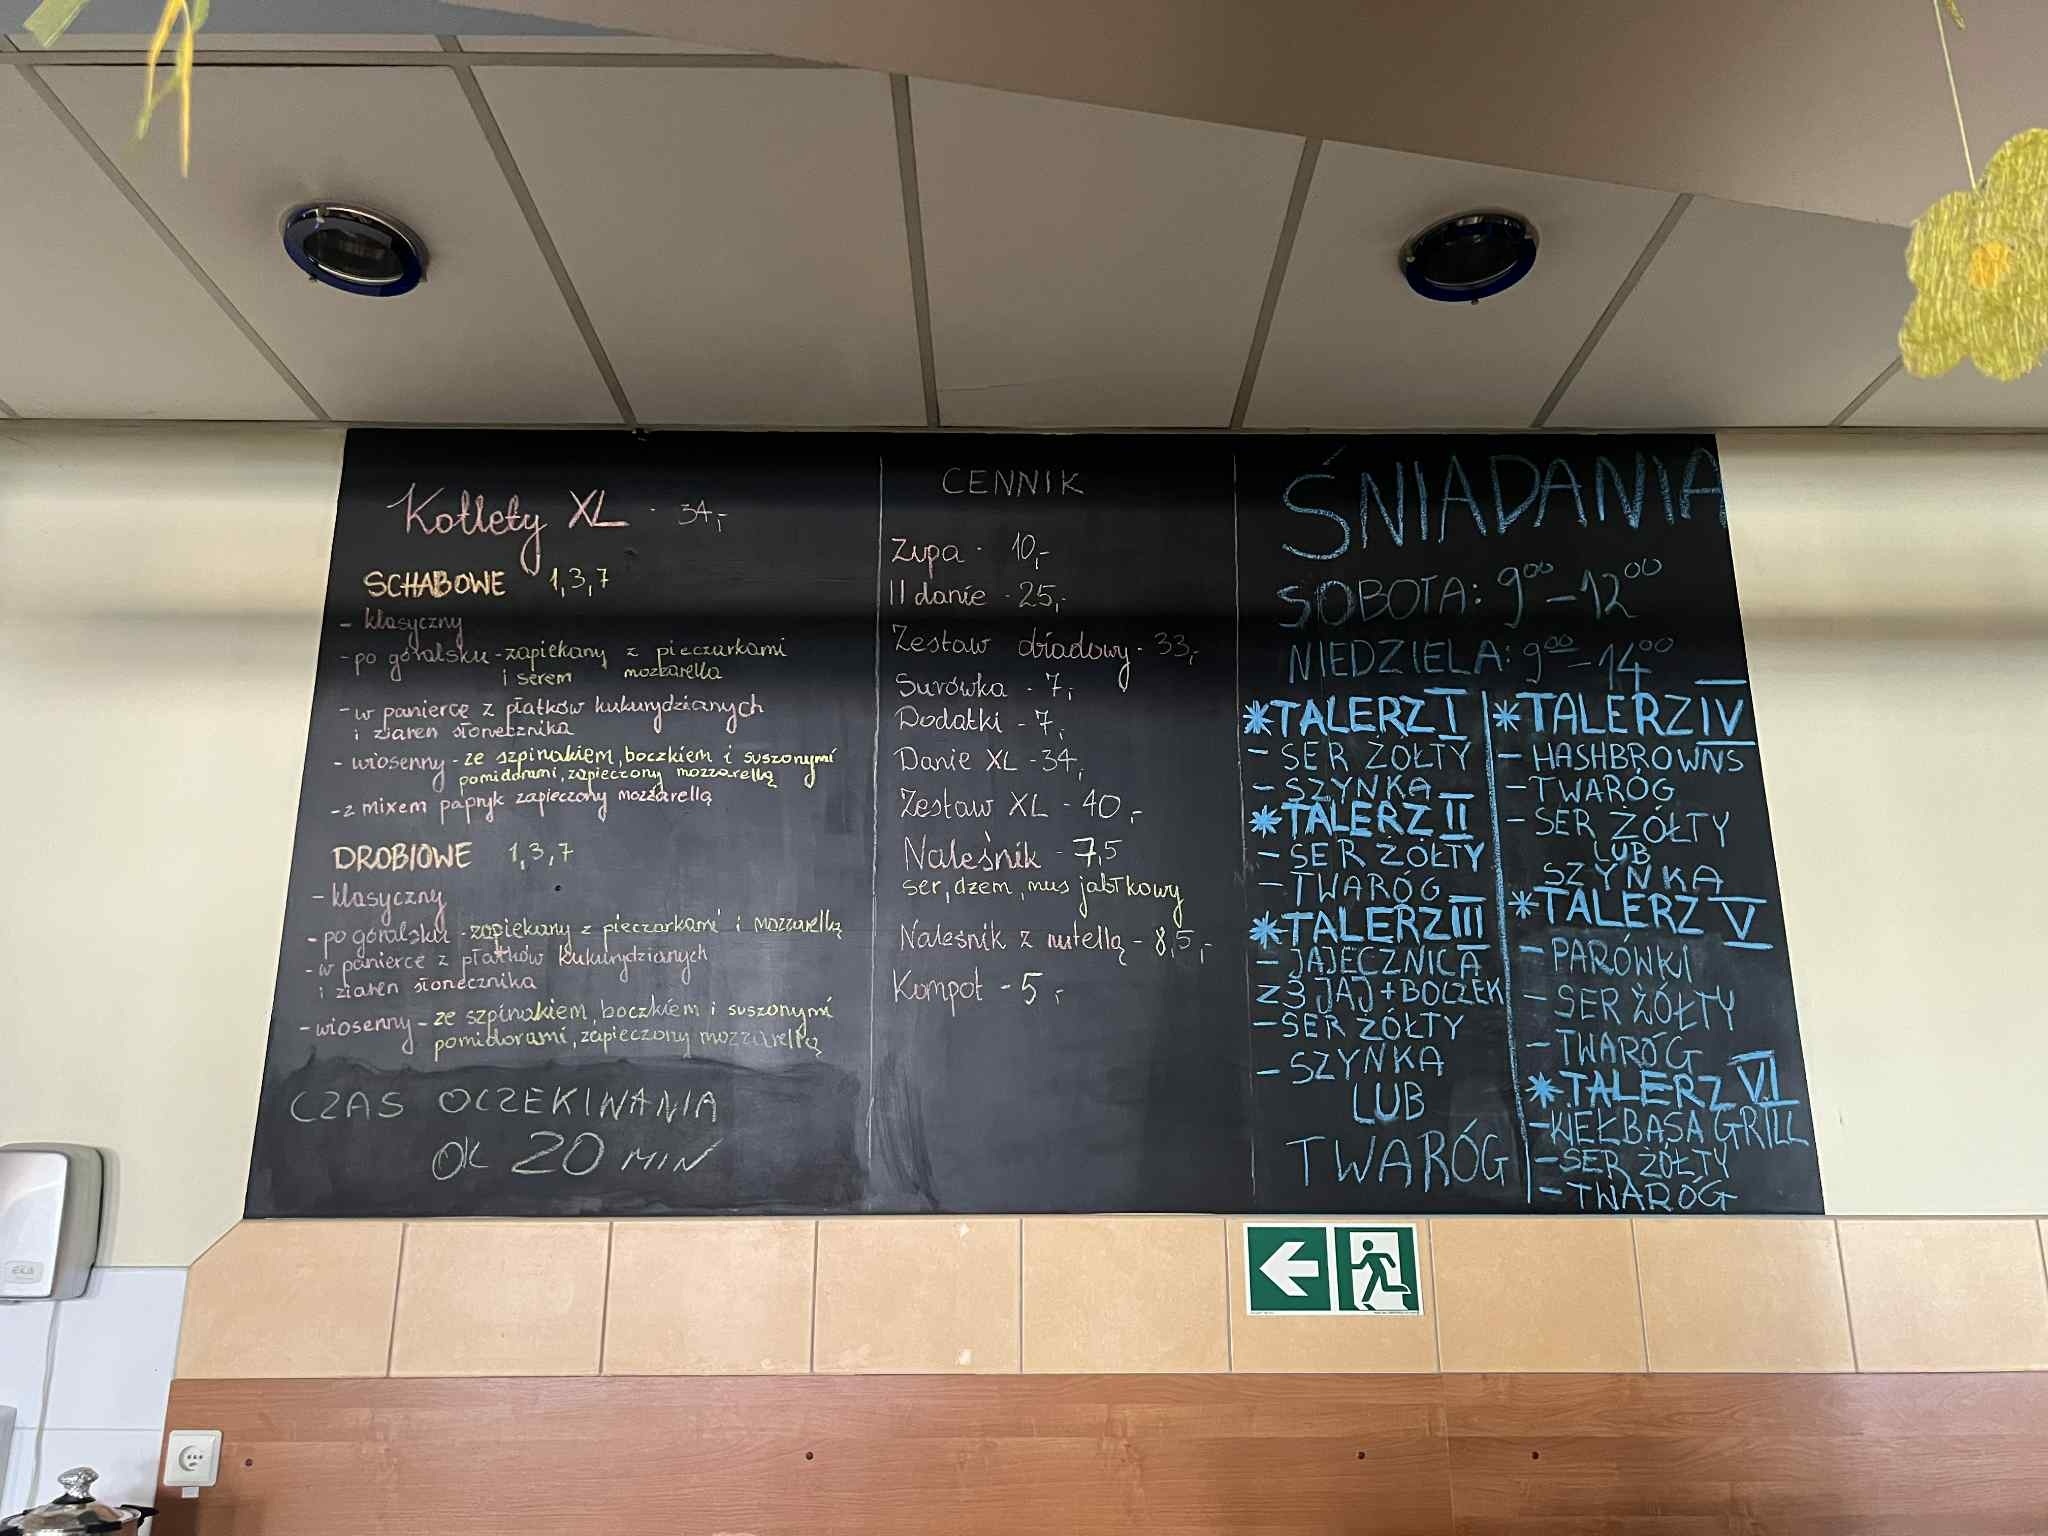 Kotlety XL - 34,-
SCHABOWE 1,3,7
- klasyczny
- po góralsku - zapiekany z pieczarkami
i serem mozzarella
- w panierce z płatków kukurydzianych
i ziaren słonecznika
- wiosenny - ze szpinakiem, boczkiem i suszonymi
pomidorami, zapieczony mozzarellą
- z mixem papryk zapieczony mozzarellą
DROBIOWE 1,3,7
- klasyczny
- po góralsku - zapiekany z pieczarkami i mozzarellą
- w panierce z płatków kukurydzianych
i ziaren słonecznika
- wiosenny - ze szpinakiem, boczkiem i suszonymi
pomidorami, zapieczony mozzarellą
CZAS OCZEKIWANIA
OK 20 MIN
CENNIK
Zupa - 10,-
II danie - 25,-
Zestaw obiadowy - 33,-
Surówka - 7,-
Dodatki - 7,-
Danie XL - 34,-
Zestaw XL - 40,-
Naleśnik - 7,5
ser, dżem, mus jabłkowy
Naleśnik z nutellą - 8,5,-
Kompot - 5,-
ŚNIADANIA
SOBOTA: 9⁰⁰ - 12⁰⁰
NIEDZIELA: 9⁰⁰ - 14⁰⁰
*TALERZ I
- SER ŻÓŁTY
- SZYNKA
*TALERZ II
- SER ŻÓŁTY
- TWARÓG
*TALERZ III
- JAJECZNICA
Z 3 JAJ + BOCZEK
- SER ŻÓŁTY
- SZYNKA
LUB
TWARÓG
*TALERZ IV
- HASHBROWNS
- TWARÓG
- SER ŻÓŁTY
LUB
SZYNKA
*TALERZ V
- PARÓWKI
- SER ŻÓŁTY
- TWARÓG
*TALERZ VI
- KIEŁBASA GRILL
- SER ŻÓŁTY
- TWARÓG